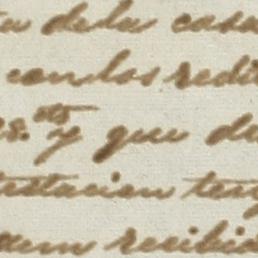 dela casa
con los redi
cts. y que de
testacion ten
recibi